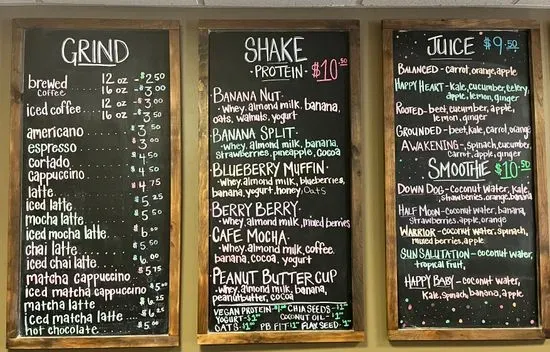 GRIND
brewed 12 oz - $2.50
coffee 16 oz - $3.00
iced coffee 12 oz - $3.00
16 oz - $3.50
americano $3.50
espresso $3.00
cortado $4.50
cappuccino $4.50
latte $4.75
iced latte $5.25
mocha latte $5.50
iced mocha latte $6.00
chai latte $5.50
iced chai latte $6.00
matcha cappuccino $5.75
iced matcha cappuccino
matcha latte $6.25
iced matcha latte
hot chocolate $5.00
SHAKE
• PROTEIN • $10.50
• BANANA NUT •
- whey, almond milk, banana,
oats, walnuts, yogurt
• BANANA SPLIT •
- whey, almond milk, banana
strawberries, pineapple, cocoa
• BLUEBERRY MUFFIN •
- whey, almond milk, blueberries,
banana, yogurt, honey, oats
• BERRY BERRY •
- whey, almond milk, mixed berries
• CAFE MOCHA •
- whey, almond milk, coffee,
banana, cocoa, yogurt
• PEANUT BUTTER CUP
- whey, almond milk, banana,
peanutbutter, cocoa
VEGAN PROTEIN - CHIA SEEDS -
YOGURT - COCONUT OIL -
OATS - PB FIT - FLAX SEED -
JUICE $9.50
BALANCED - carrot, orange, apple
HAPPY HEART - kale, cucumber, celery,
apple, lemon, ginger
ROOTED - beet, cucumber, apple,
lemon, ginger
GROUNDED - beet, kale, carrot, orange
AWAKENING - spinach, cucumber,
carrot, apple, ginger
SMOOTHIE $10.50
DOWN DOG - coconut water, kale,
strawberries, orange, banana
HALF MOON - coconut water, banana,
strawberries, apple, orange
WARRIOR - coconut water, spinach,
mixed berries, apple
SUN SALUTATION - coconut water,
tropical fruit,
HAPPY BABY - coconut water,
kale, spinach, banana, apple